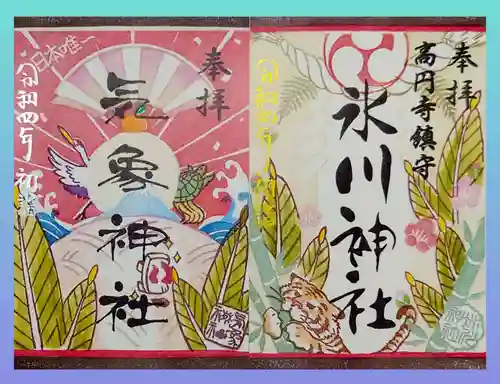 奉拝
日本唯一
気象神社
令和四年 初詣
奉拝
高円寺鎮守
氷川神社
令和四年 初詣